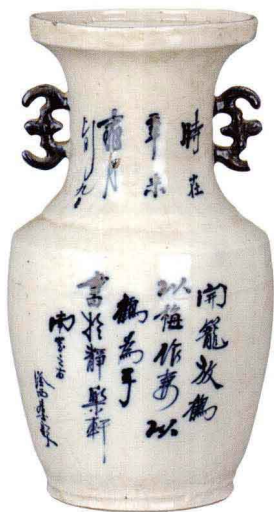 時在
辛未
月
開籠放鶴
以梅作妻以
鶴為子
書於靜樂軒
南之